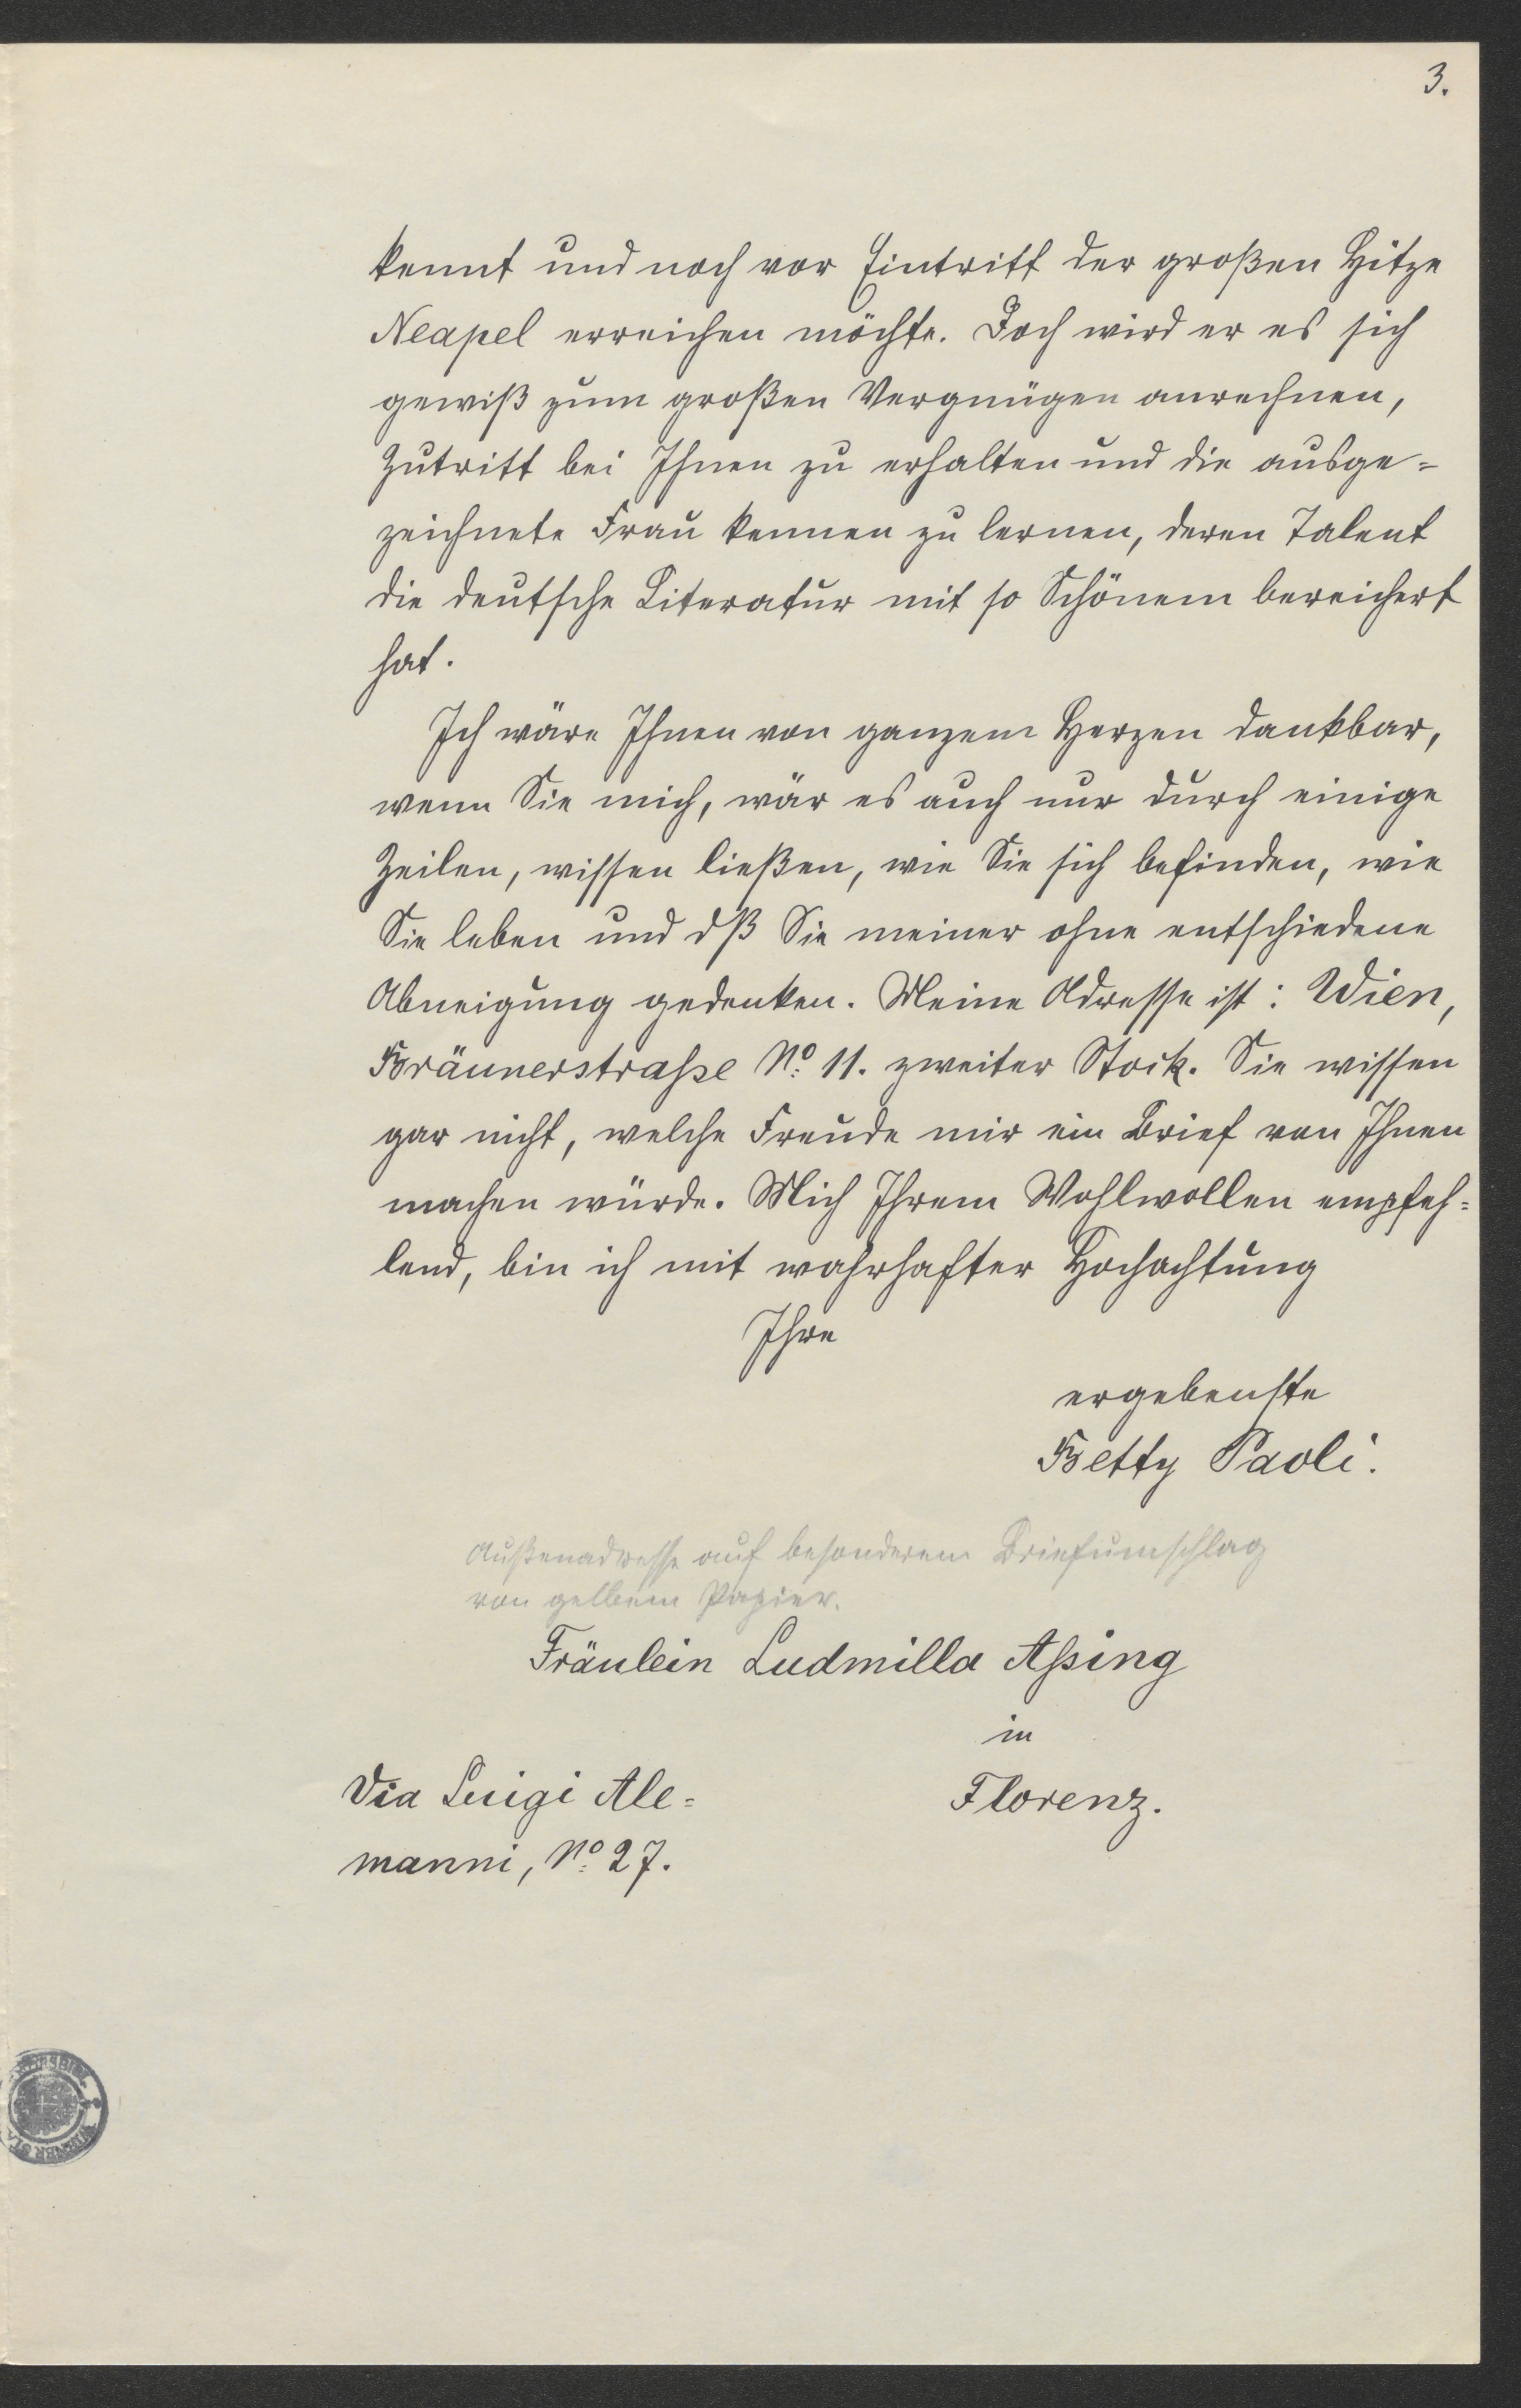 3.
kennt und noch vor Eintritt der großen Hitze
Neapel erreichen möchte. Doch wird er es sich
gewiß zum großen Vergnügen anrechnen,
Zutritt bei Ihnen zu erhalten und die ausge=
zeichnete Frau kennen zu lernen, deren Talent
die deutsche Literatur mit so Schönem bereichert
hat.
Ich wäre Ihnen von ganzem Herzen dankbar,
wenn Sie mich, wär es auch nur durch einige
Zeilen, wissen ließen, wie Sie sich befinden, wie
Sie leben und dß Sie meiner ohne entschiedene
Abneigung gedenken. Meine Adresse ist: Wien,
Bräunerstraße No. 11. zweiter Stock. Sie wissen
gar nicht, welche Freude mir ein Brief von Ihnen
machen würde. Mich Ihrem Wohlwollen empfeh=
lend, bin ich mit wahrhafter Hochachtung
Ihre
ergebenste
Betty Paoli.
Außenadresse auf besonderem Briefumschlag
von gelbem Papier.
Fräulein Ludmilla Aßing
in
Florenz.
Via Luigi Ale=
manni, No. 27.